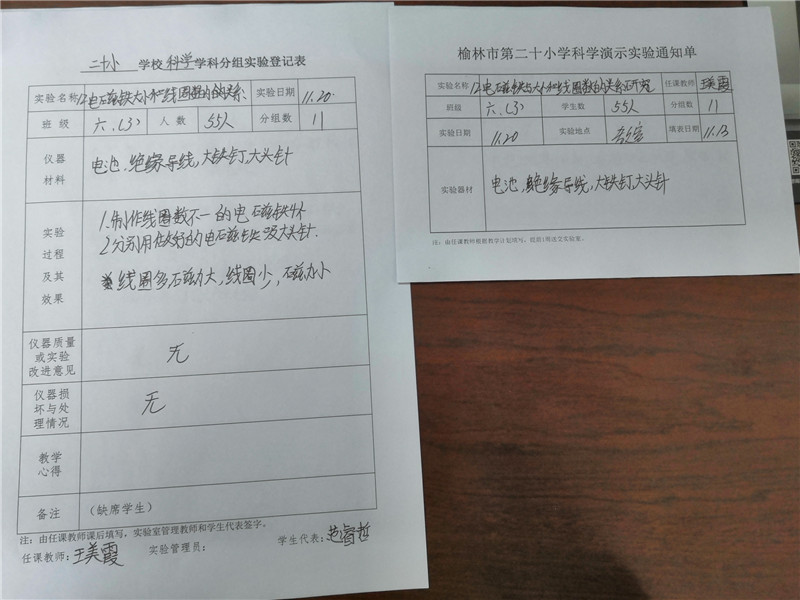 二十小 学校 科学 学科分组实验登记表
实验名称 12.电磁铁大小和线圈数的的关系 实验日期 11.20.
班 级 六.(3) 人 数 55人 分组数 11
仪器
材料
电池.绝缘导线,大铁钉,大头针
实验
过程
及其
效果
1.制作线圈数不一的电磁铁
2分别用做好的电磁铁吸大头针.
线圈多磁力大,线圈少,磁力小
仪器质量
或实验
改进意见
无
仪器损
坏与处
理情况
无
教学
心得
备注 (缺席学生)
注:由任课教师课后填写,实验室管理教师和学生代表签字。
任课教师:王美霞 实验管理员: 学生代表:范睿哲
榆林市第二十小学科学演示实验通知单
实验名称 12.电磁铁与大小和线圈数的关系研究 任课教师 王美霞
班级 六.(3) 学生数 55人 分组数 11
实验日期 11.20 实验地点 填表日期 11.13
实验器材 电池,绝缘导线,大铁钉,大头针
注:由任课教师根据教学计划填写,提前1周送交实验室。